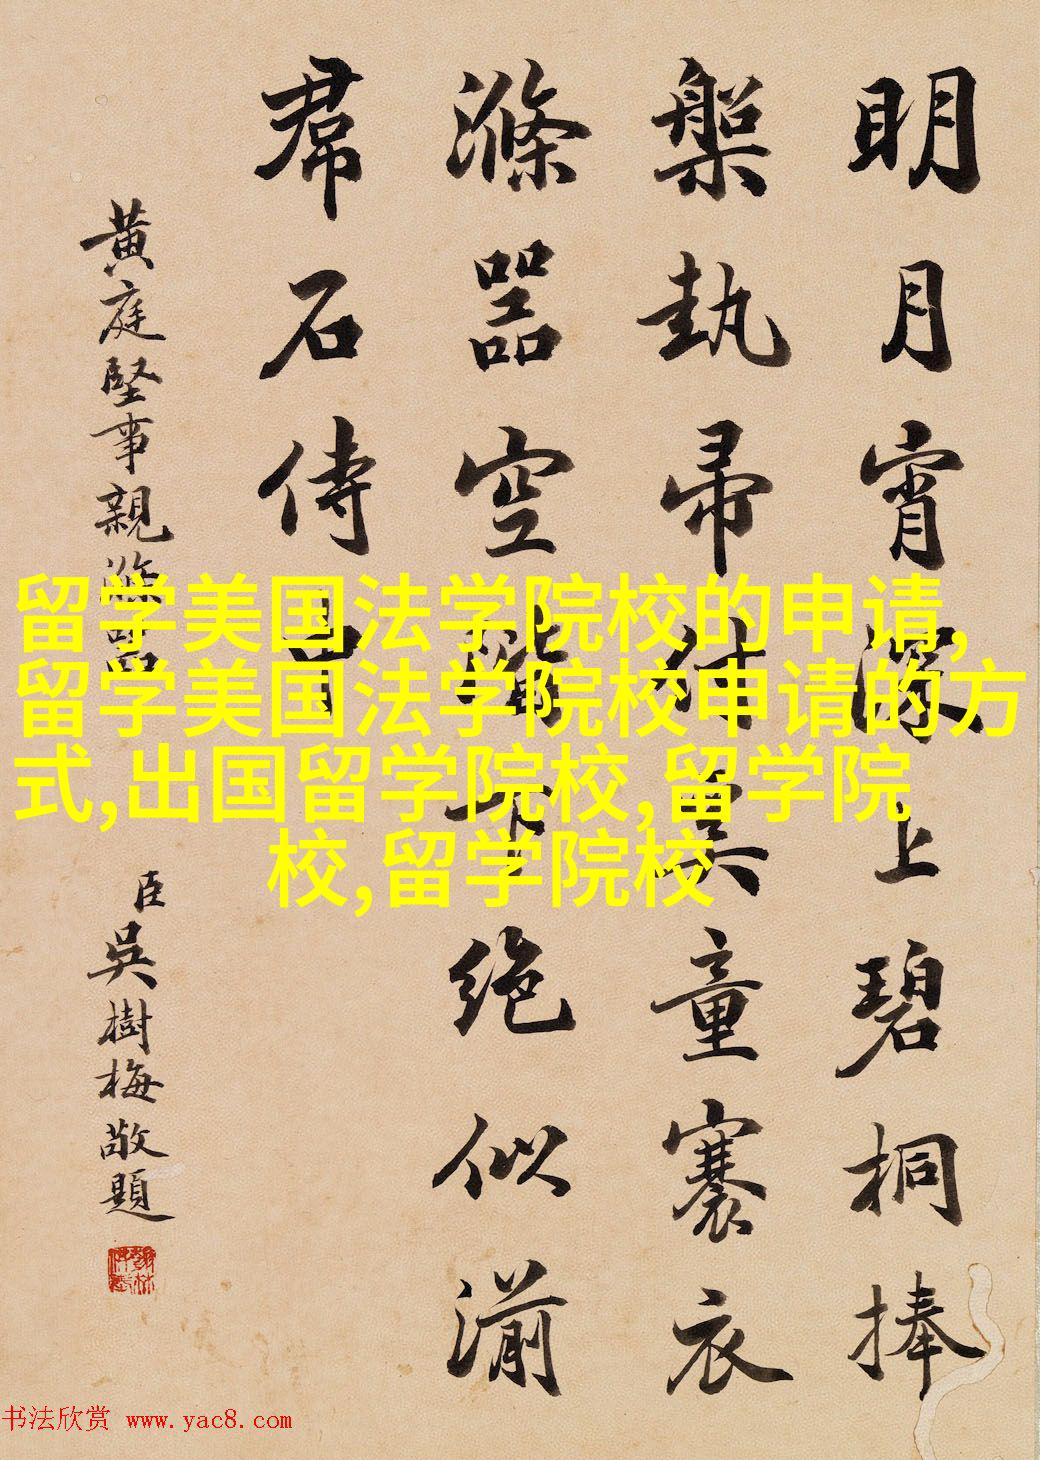 明月宵深上碧桐捧
槃執帚付奚童褰衣
滌器空階下絕似湔
帬石侍
黃庭堅事親滌器
臣吳樹梅敬題
留学美国法学院校的申请,
留学美国法学院校申请的方
式,出国留学院校,留学院
校,留学院校
书法欣赏 www.yac8.com